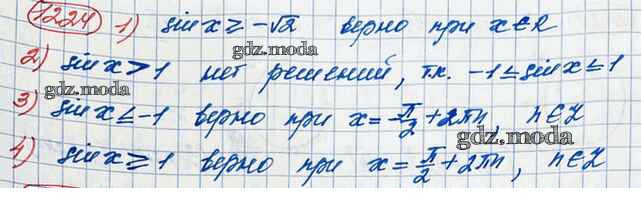 1224 1) sin x ≥ -√2 верно при x∈R
gdz.moda
2) sin x > 1 нет решений, т.к. -1 ≤ sin x ≤ 1
3) sin x ≤ -1 верно при x = -π/2 + 2πn, n∈Z
gdz.moda
4) sin x ≥ 1 верно при x = π/2 + 2πn, n∈Z